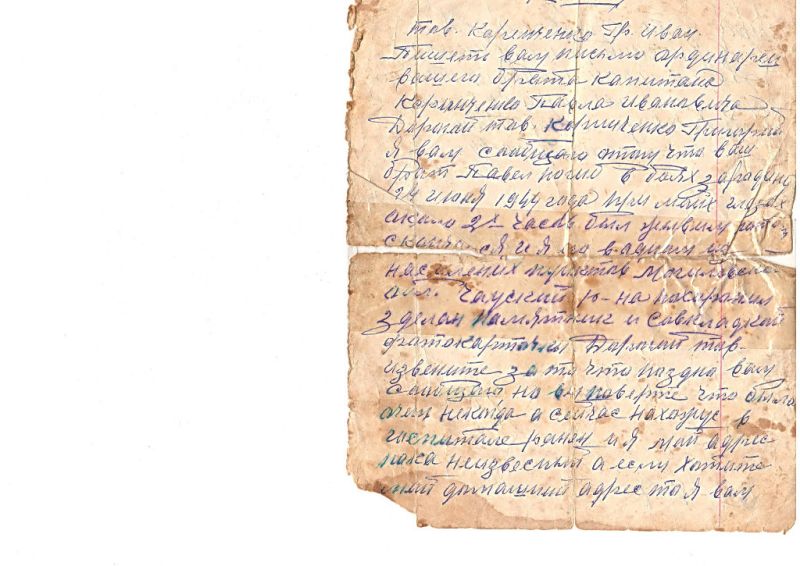 тов. Корниенко Гр. Иван.
Пишеть вам письмо ординарец
вашего брата капитана
Павла Ивановича
Дарагай тов. Григорий
Я вам сообщаю этому что ваш
брат Павел погиб в боях за родину
24 июня 1944 года при моих глазах
около 2х часов был живым
и я его в адному из
населеных пунктов Могилевской
обл. Чауский р-на похаранил
зделан памятник и савкладкой
фатокарточки Дарагай тов.
извените за то что паздна вам
сообщаю но вы поверте что было
очен некогда а сейчас нахожус в
госпитале ранен и я мой адрес
пока неизвесный а если хатите
май домашний адрес то я вам